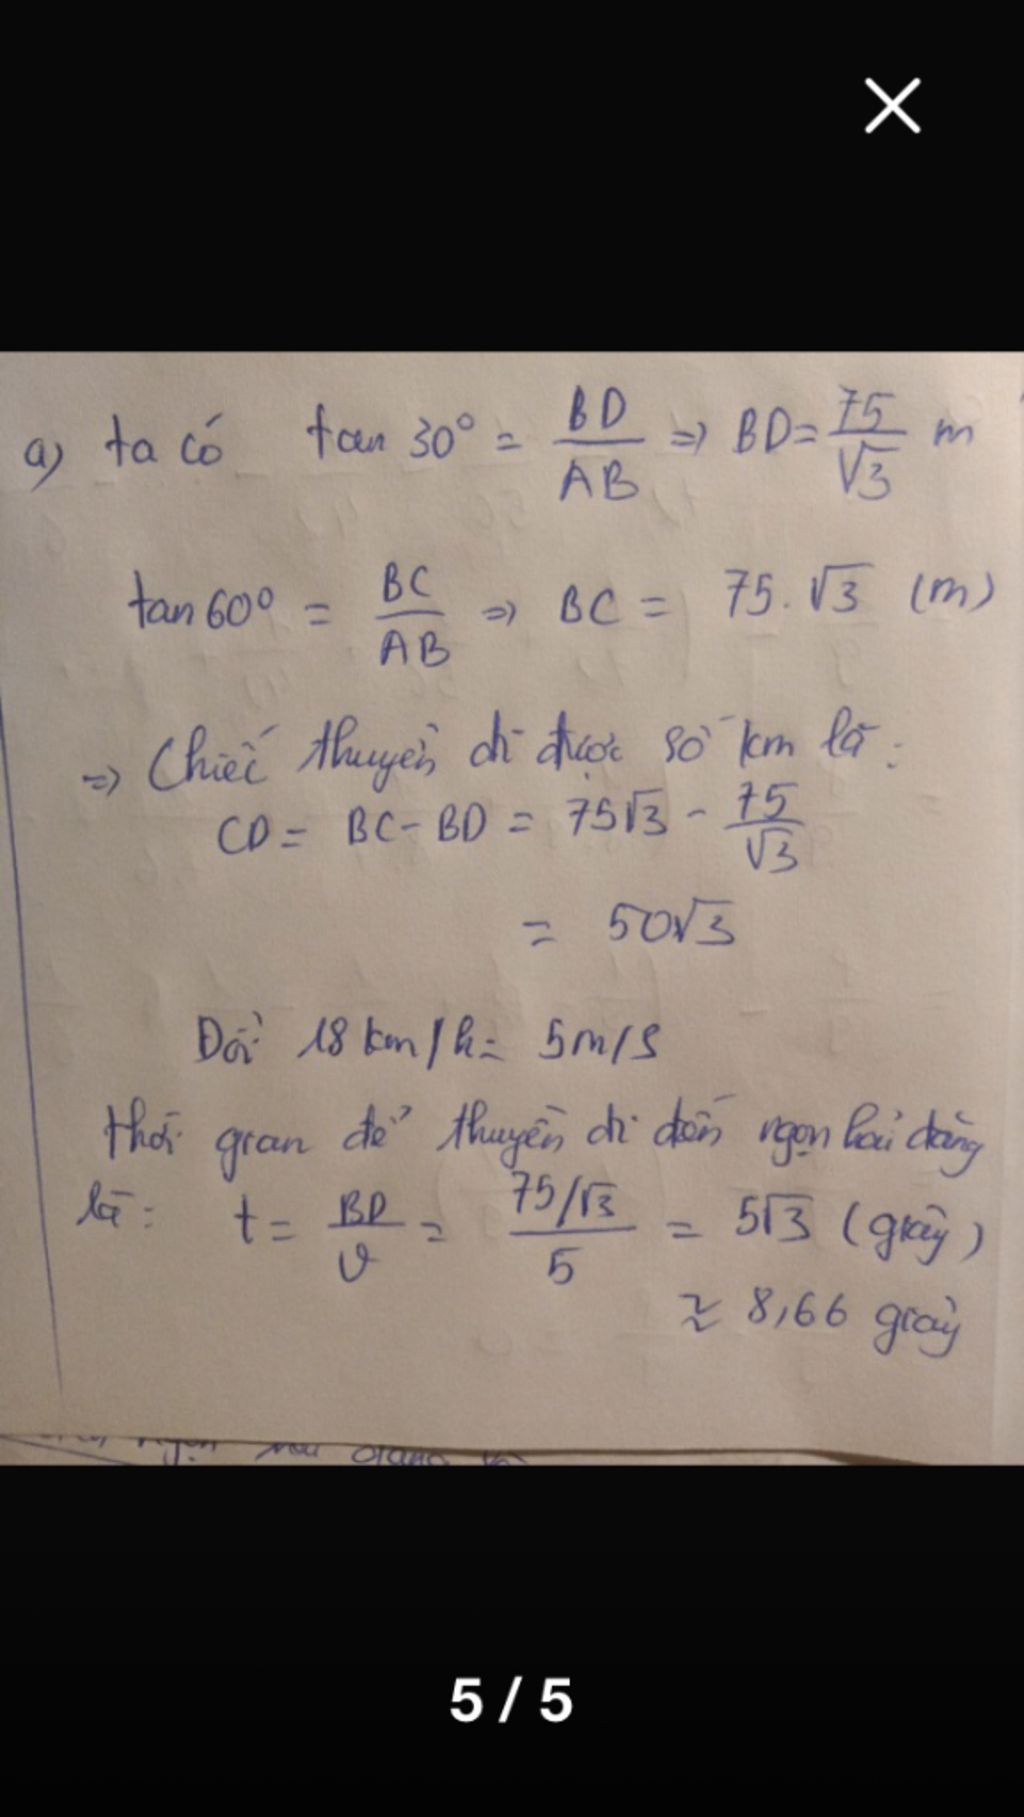 a) ta có tan 30° = BD/AB => BD = 75/√3 m
tan 60° = BC/AB => BC = 75.√3 (m)
=> Chiếc thuyền đi được số km là:
CD = BC - BD = 75√3 - 75/√3
= 50√3
Đổi 18 km/h = 5m/s
thời gian để thuyền đi đến ngọn hải đăng
là: t = BD/v = 75/√3/5 = 5√3 (giây)
≈ 8,66 giây
5 / 5